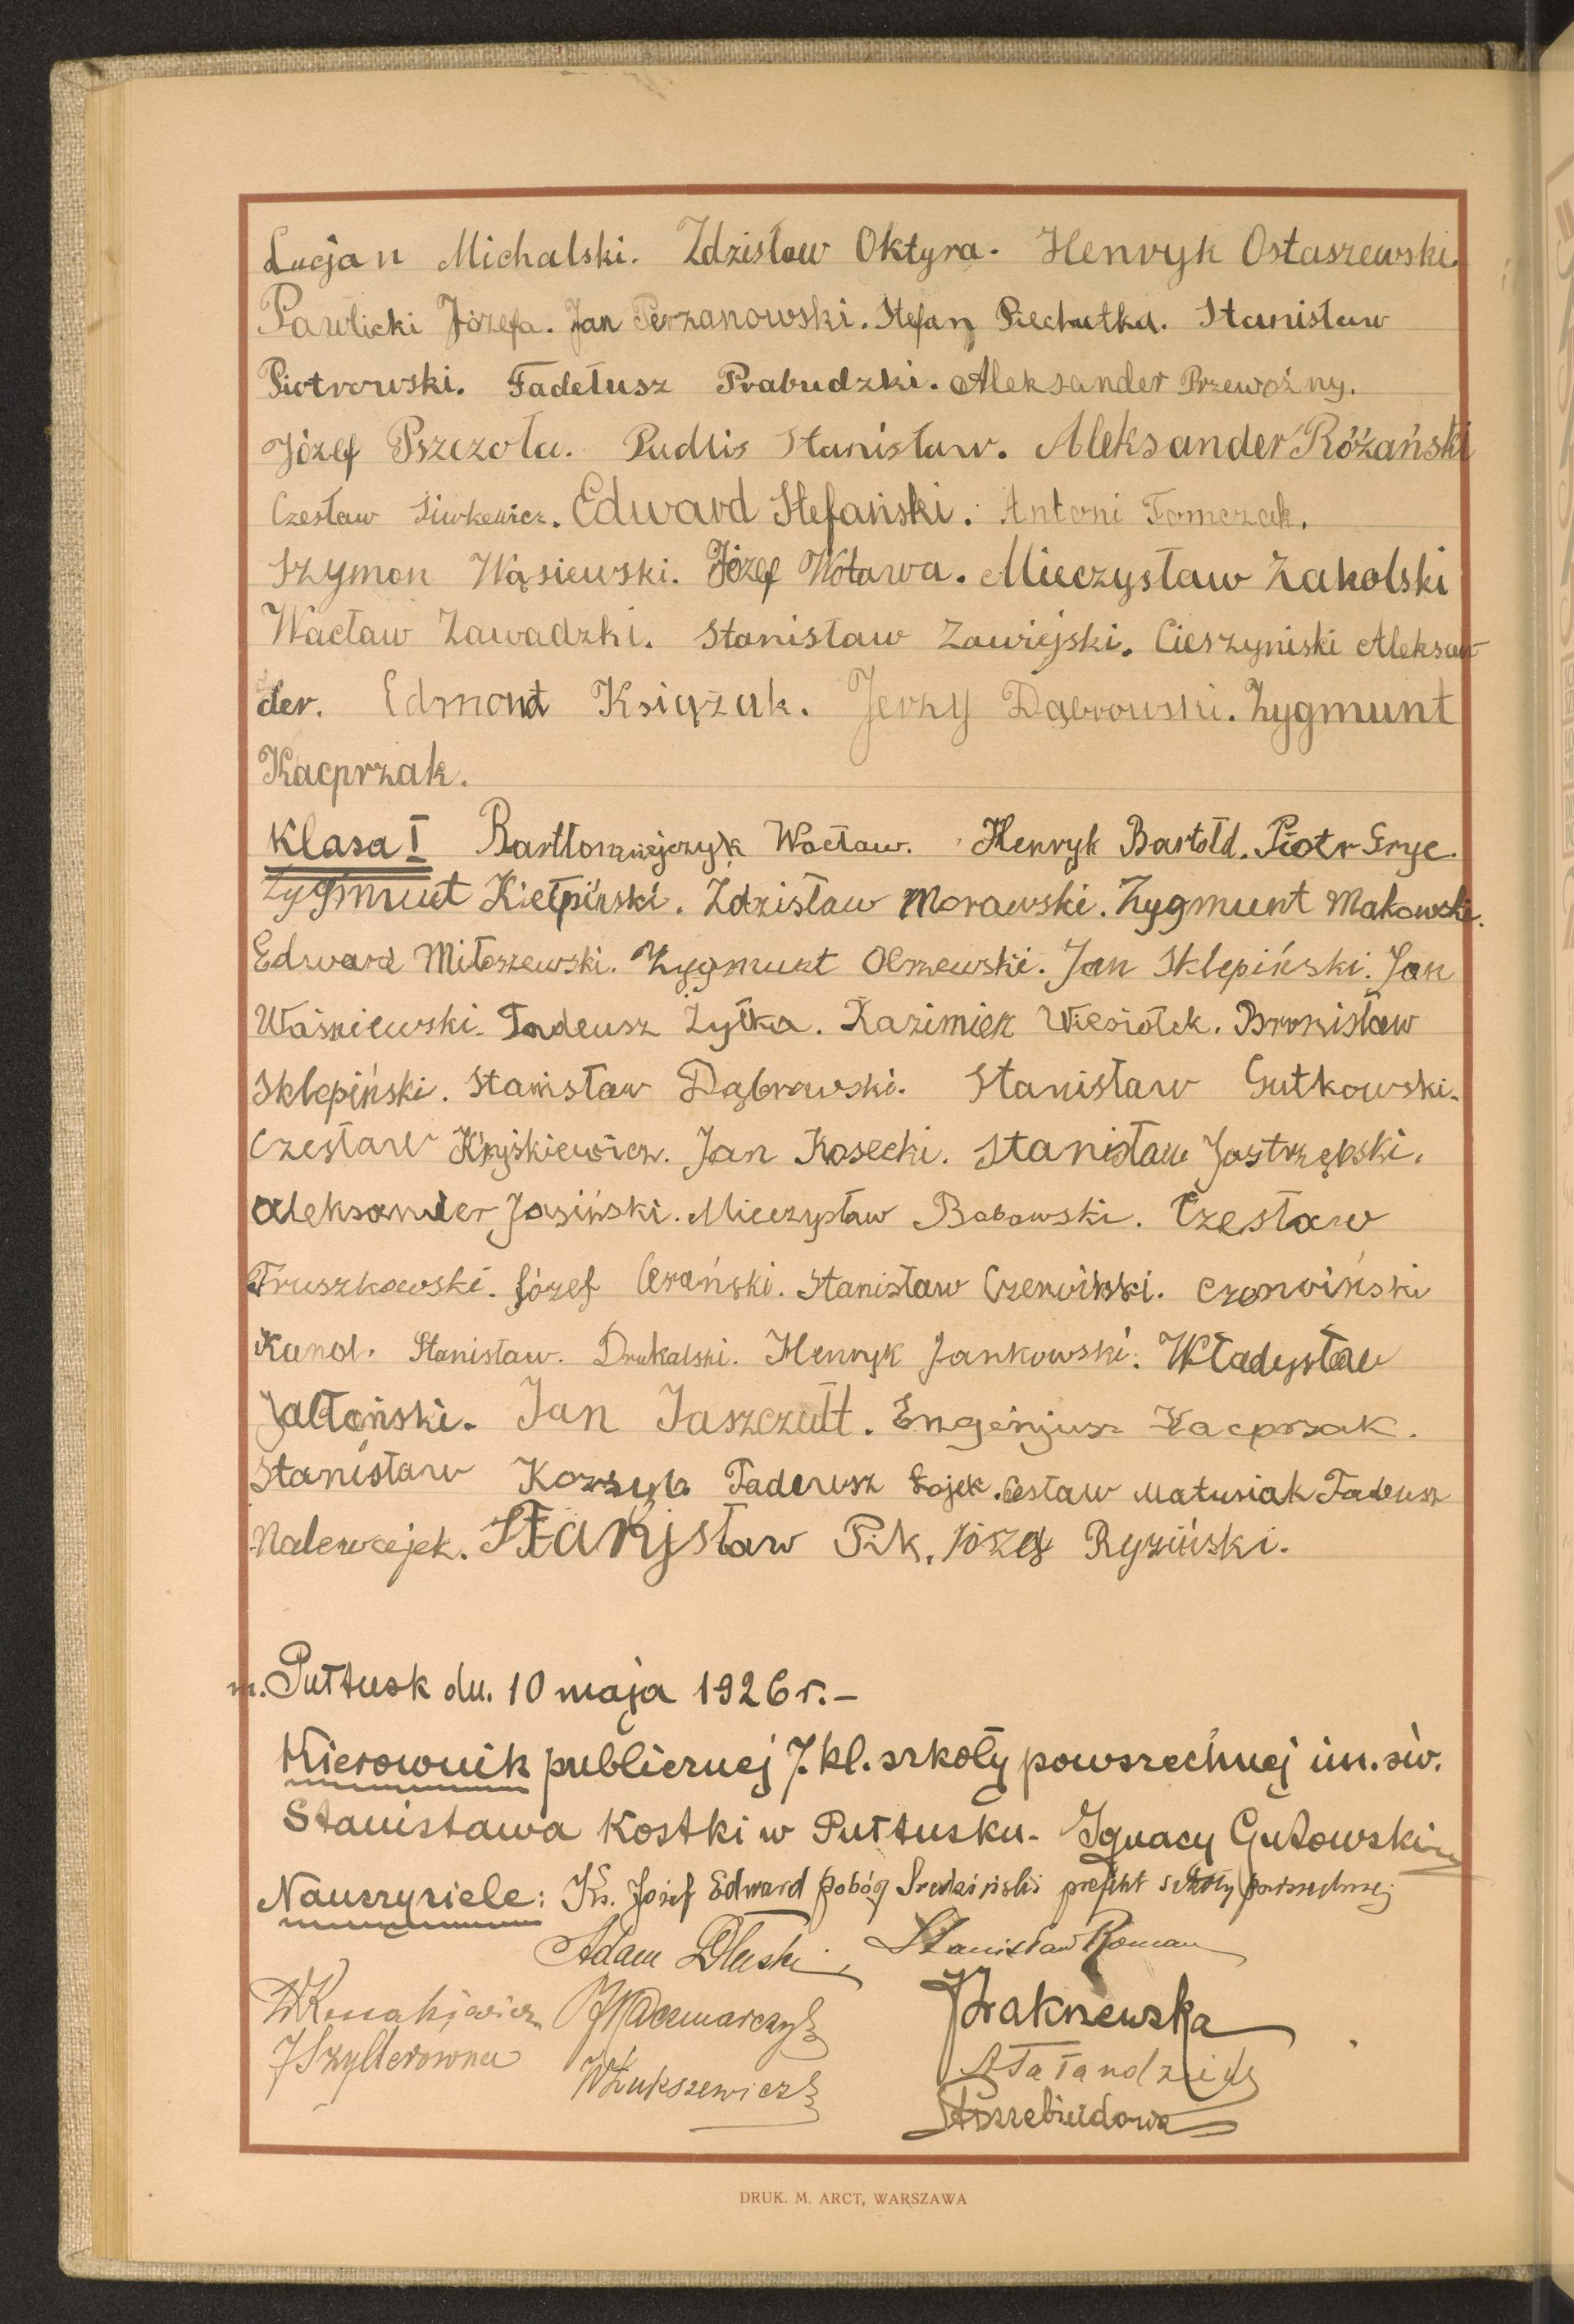 Lucjan Michalski. Zdzisław Oktyra. Henryk Ostaszewski.
Pawlicki Józefa. Jan Perzanowski. Stefan Piechutka. Stanisław
Piotrowski. Tadełusz Prabudzki. Aleksander Przewoźny.
Józef Pszczoła. Pudlis Stanisław. Aleksander Różański
Czesław Siwkewicz. Edward Stefański. Antoni Tomczak.
Szymon Wąsiewski. Józef Wotawa. Mieczysław Zakolski
Wacław Zawadzki. Stanisław Zawiejski. Cieszyniski Aleksan-
der. Edmond Książak. Jerzy Dąbrowski. Zygmunt
Kacprzak.
Klasa I Bartłomiejczyk Wacław. Henryk Bartołd. Piotr Gryc.
Zygmunt Kiełpiński. Zdzisław Morawski. Zygmunt Makowski.
Edward Miłoszewski. Zygmunt Olszewski. Jan Sklepiński. Jan
Waśniewski. Tadeusz Żyłka. Kazimierz Wiesiołek. Bronisław
Sklepiński. Stanisław Dąbrowski. Stanisław Gutkowski.
Czesław Kryśkiewicz. Jan Kosecki. Stanisław Jastrzębski.
Aleksander Jasiński. Mieczysław Bobowski. Czesław
Truszkowski. Józef Cerański. Stanisław Czerwiński. Czerwiński
Karol. Stanisław. Drukalski. Henryk Jankowski. Władysław
Jabłoński. Jan Jaszczułt. Eugenjusz Kacprzak.
Stanisław Kozzyb Tadeusz Łojek. Cesław Matusiak Tadeusz
Nalewajek. Stanisław Pik. Józef Ryziński.
m. Pułtusk dn. 10 maja 1926 r.-
Kierownik publicznej 7. kl. szkoły powszechnej im. św.
Stanisława Kostki w Pułtusku- Ignacy Gutowski
Nauczyciele: Ks. Józef Edward Pobóg Średziński prefekt szkoły powszechnej
Adam Dłuski, Stanisław Roman
JKaczmarczyk JZakrzewska
JSzylterówna STatandzięk
WŁukszewicz